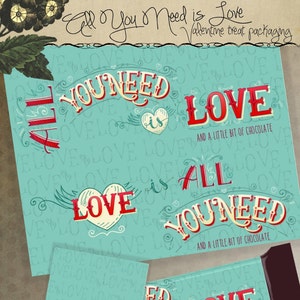 All You Need is Love
Valentine treat packaging
ALL
YOU NEED
is
LOVE
AND A LITTLE BIT OF CHOCOLATE
LOVE
is
ALL
YOU NEED
AND A LITTLE BIT OF CHOCOLATE
ED
LOVE